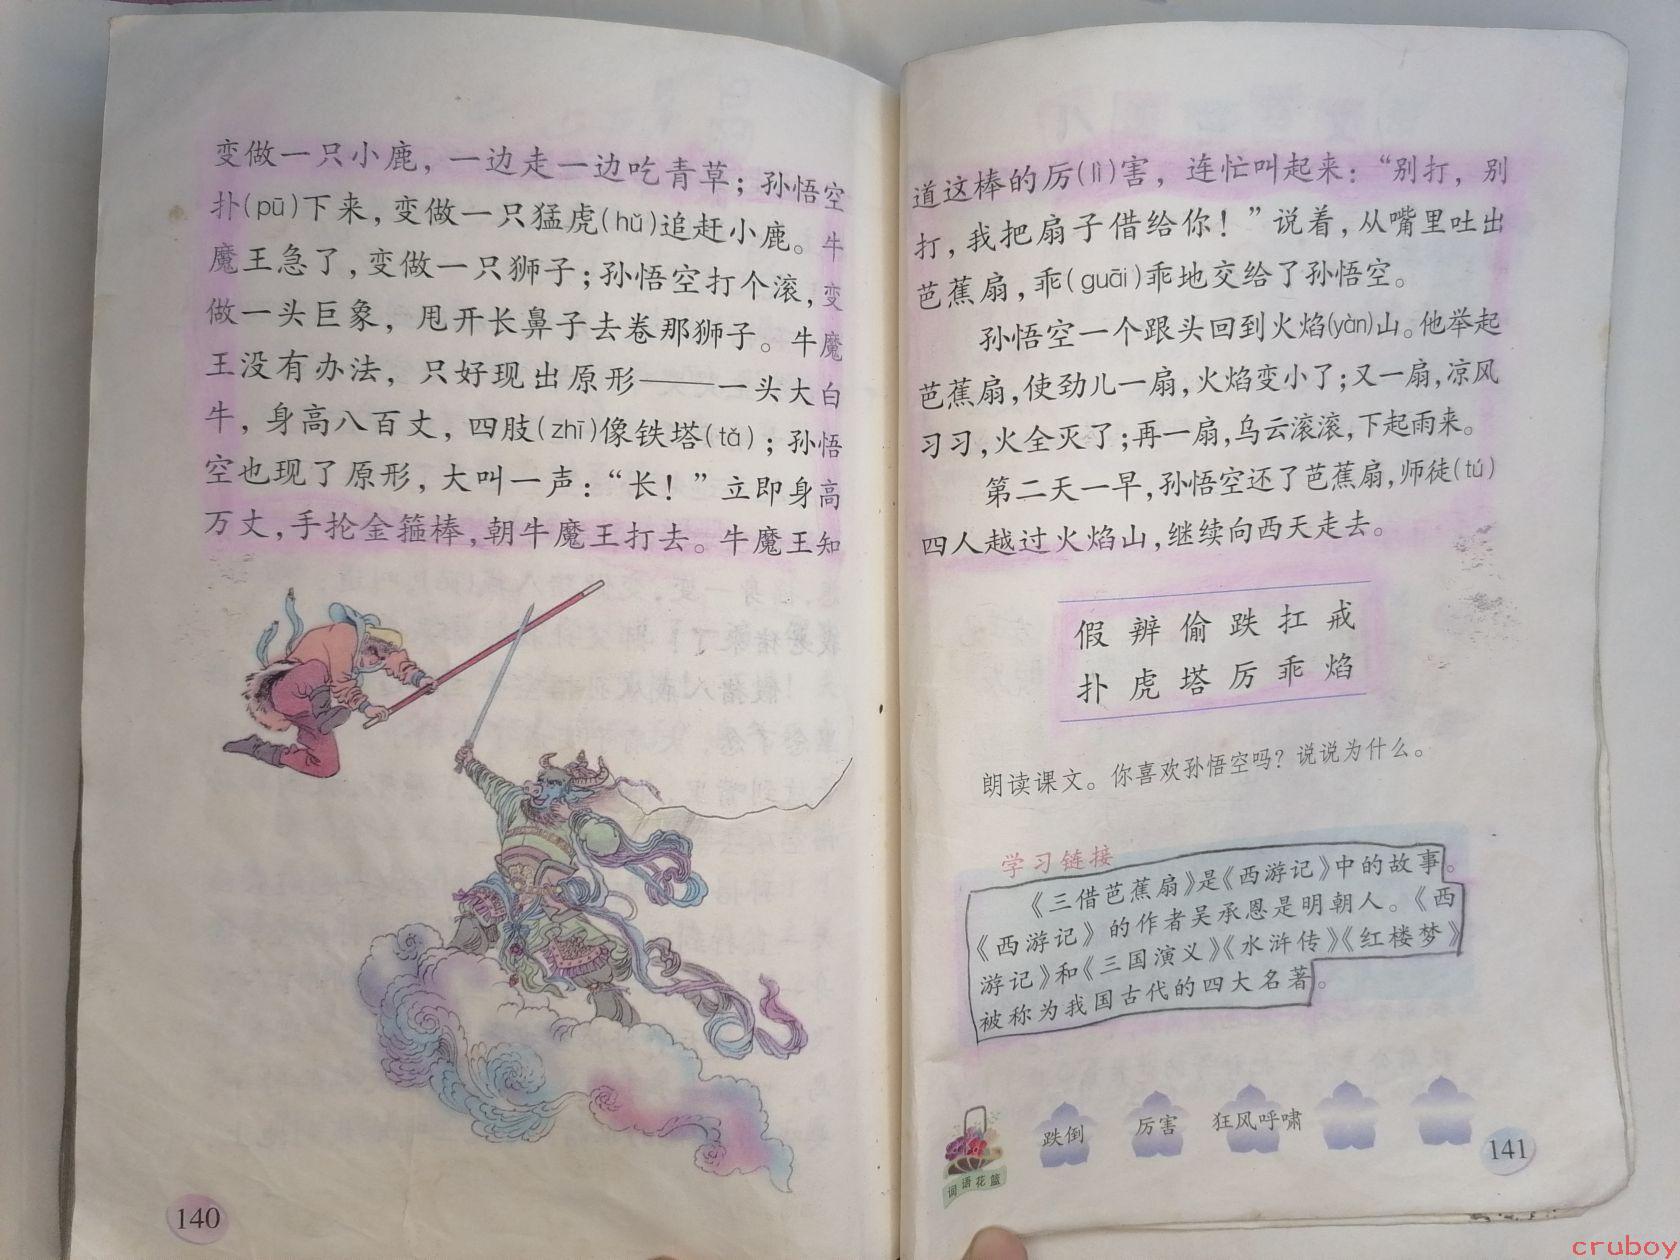 变做一只小鹿，一边走一边吃青草；孙悟空
扑(pū)下来，变做一只猛虎(hǔ)追赶小鹿。牛
魔王急了，变做一只狮子；孙悟空打个滚，变
做一头巨象，甩开长鼻子去卷那狮子。牛魔
王没有办法，只好现出原形——一头大白
牛，身高八百丈，四肢(zhī)像铁塔(tǎ)；孙悟
空也现了原形，大叫一声：“长！”立即身高
万丈，手抡金箍棒，朝牛魔王打去。牛魔王知
140
道这棒的厉(lì)害，连忙叫起来：“别打，别
打，我把扇子借给你！”说着，从嘴里吐出
芭蕉扇，乖(guāi)乖地交给了孙悟空。
孙悟空一个跟头回到火焰(yàn)山。他举起
芭蕉扇，使劲儿一扇，火焰变小了；又一扇，凉风
习习，火全灭了；再一扇，乌云滚滚，下起雨来。
第二天一早，孙悟空还了芭蕉扇，师徒(tú)
四人越过火焰山，继续向西天走去。
假 辨 偷 跌 扛 戒
扑 虎 塔 厉 乖 焰
朗读课文。你喜欢孙悟空吗？说说为什么。
学习链接
《三借芭蕉扇》是《西游记》中的故事。
《西游记》的作者吴承恩是明朝人。《西
游记》和《三国演义》《水浒传》《红楼梦》
被称为我国古代的四大名著。
词语花篮
跌倒 厉害 狂风呼啸
141
cruboy